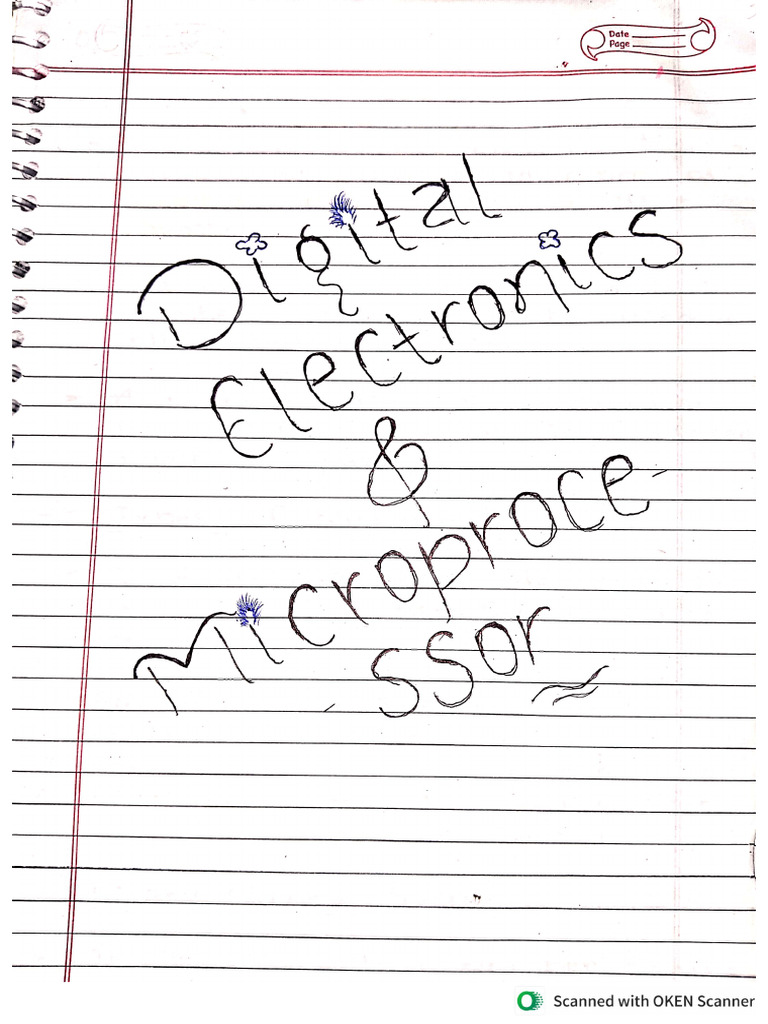 Date
Page
Digital
Electronics
&
Microproce-
-ssor
Scanned with OKEN Scanner